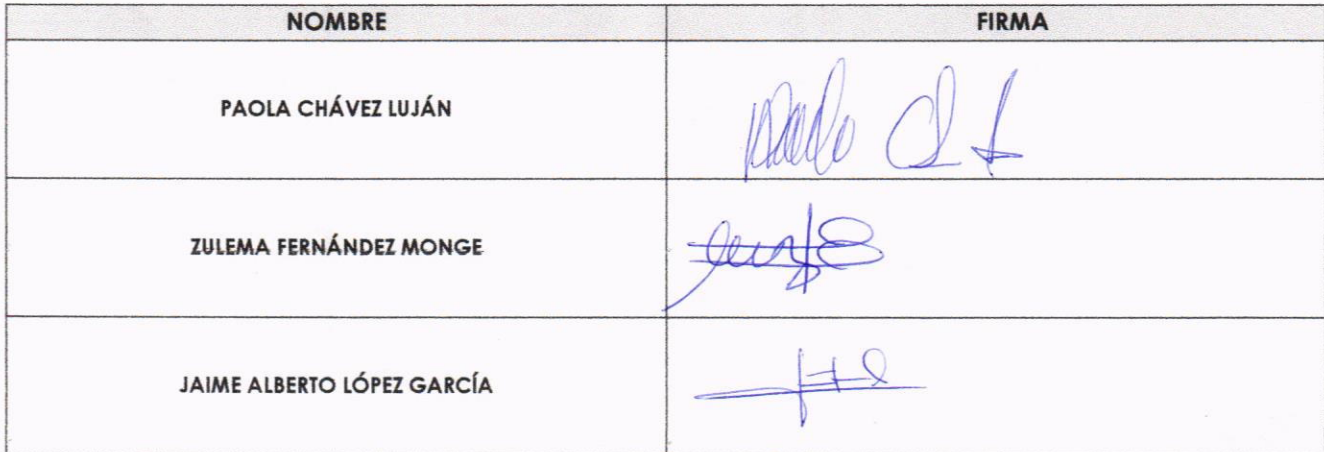 NOMBRE FIRMA
PAOLA CHÁVEZ LUJÁN
ZULEMA FERNÁNDEZ MONGE
JAIME ALBERTO LÓPEZ GARCÍA